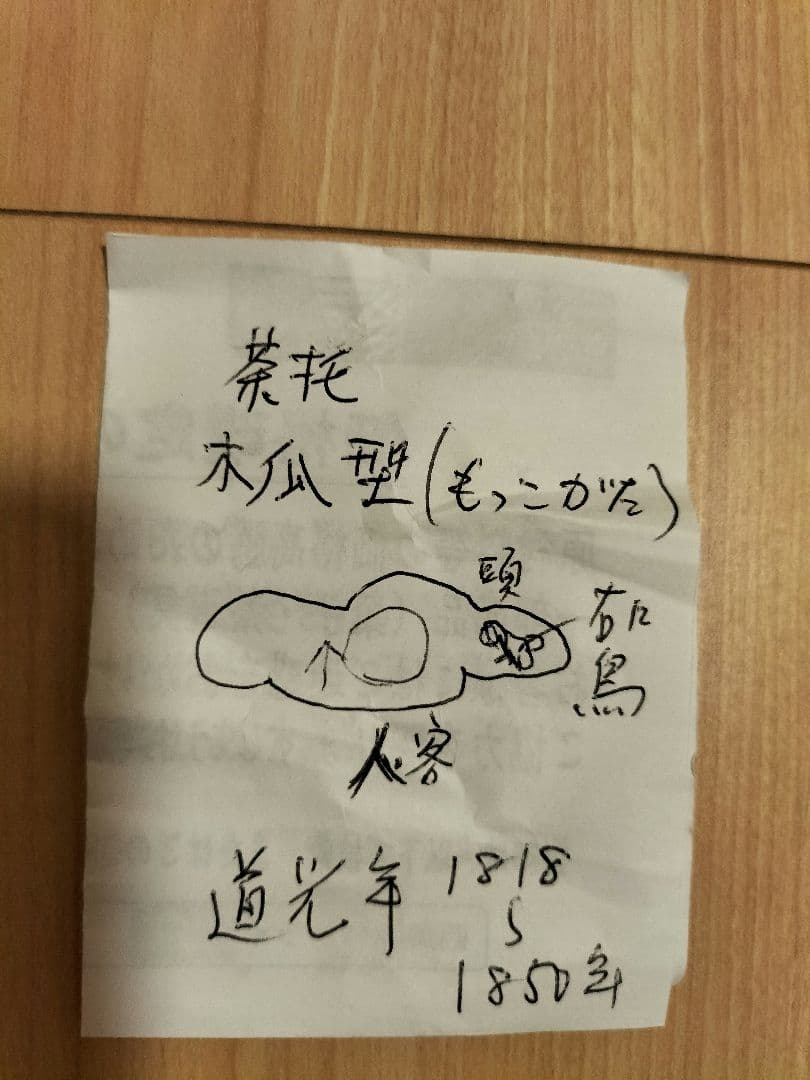 茶托
木瓜型(もっこがた)
頭
右に
鳥
客
道光年 1818
〜
1850年